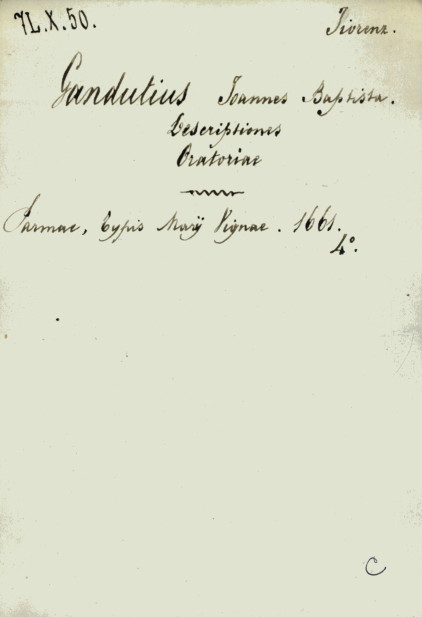 7L.X.50.
Fiorenz.
Gandutius Joannes Baptista.
Descriptiones
Oratoriae
Parmae, typis Marij Vignae. 1661.
4º.
C